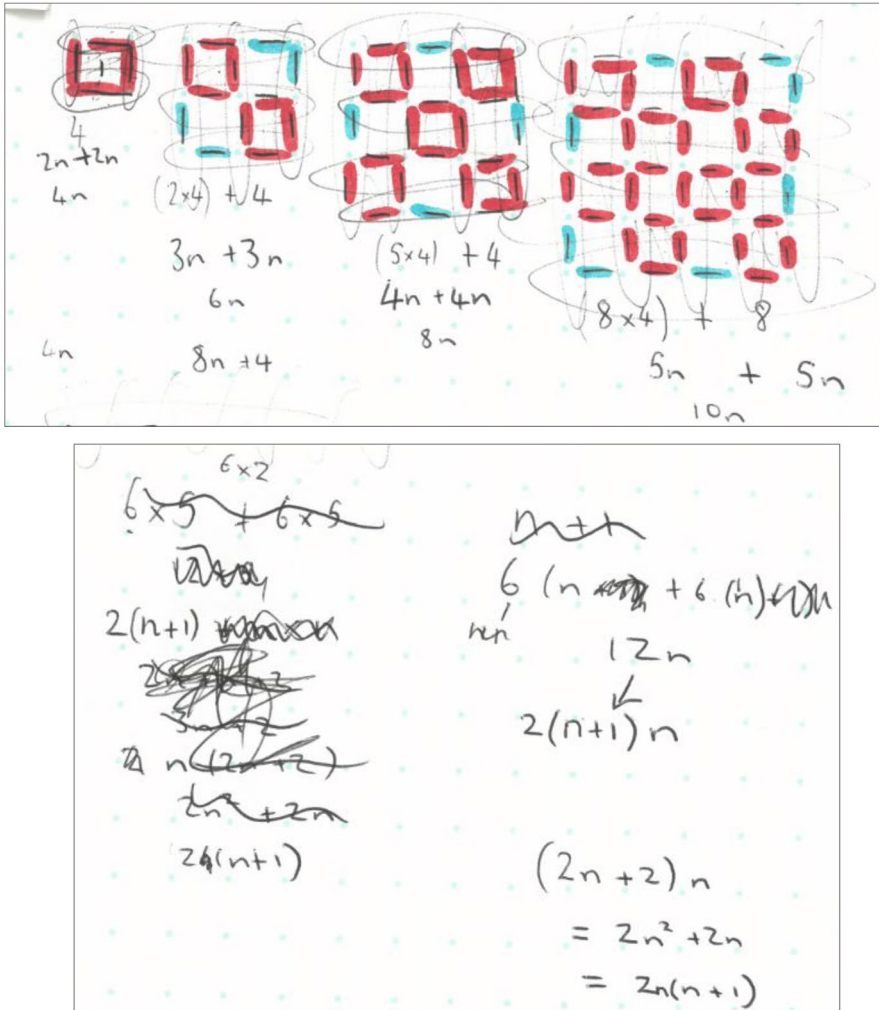 1
4
2n +2n
4n
(2×4) + 4
3n +3n
6n
(5×4) + 4
4n +4n
8n
(8×4) + 8
5n + 5n
10n
4n
8n +4
6×2
6×5 + 6×5
2(n+1)
n (2n +2)
2n² +2n
2n(n+1)
n+1
6 (n + 6 (n)
12n
2(n+1) n
(2n +2) n
= 2n² +2n
= 2n(n+1)